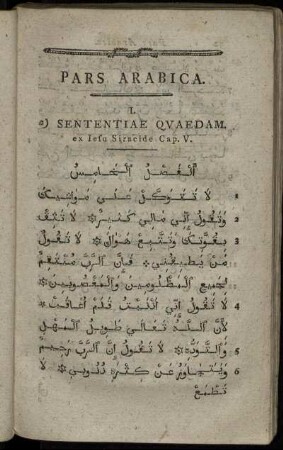 PARS ARABICA.
I.
a) SENTENTIAE QVAEDAM.
ex Iesu Siracide Cap. V.
الفصل الخامس
لا تتوكل على 1
وتقول اني مالي كثير * لا تثق 2
بقوتك وتتبع هواك * لا تقول 3
من يطيقني * فان الرب منتقم
جميع المظلومين والمغصوبين
لا تقول اني اذنبت فما اعاقب 4
لان الله تعالى طويل المهل
والتودة * لا تقول ان الرب رحيم 5
عن كثرة ذنوبي * لا 6